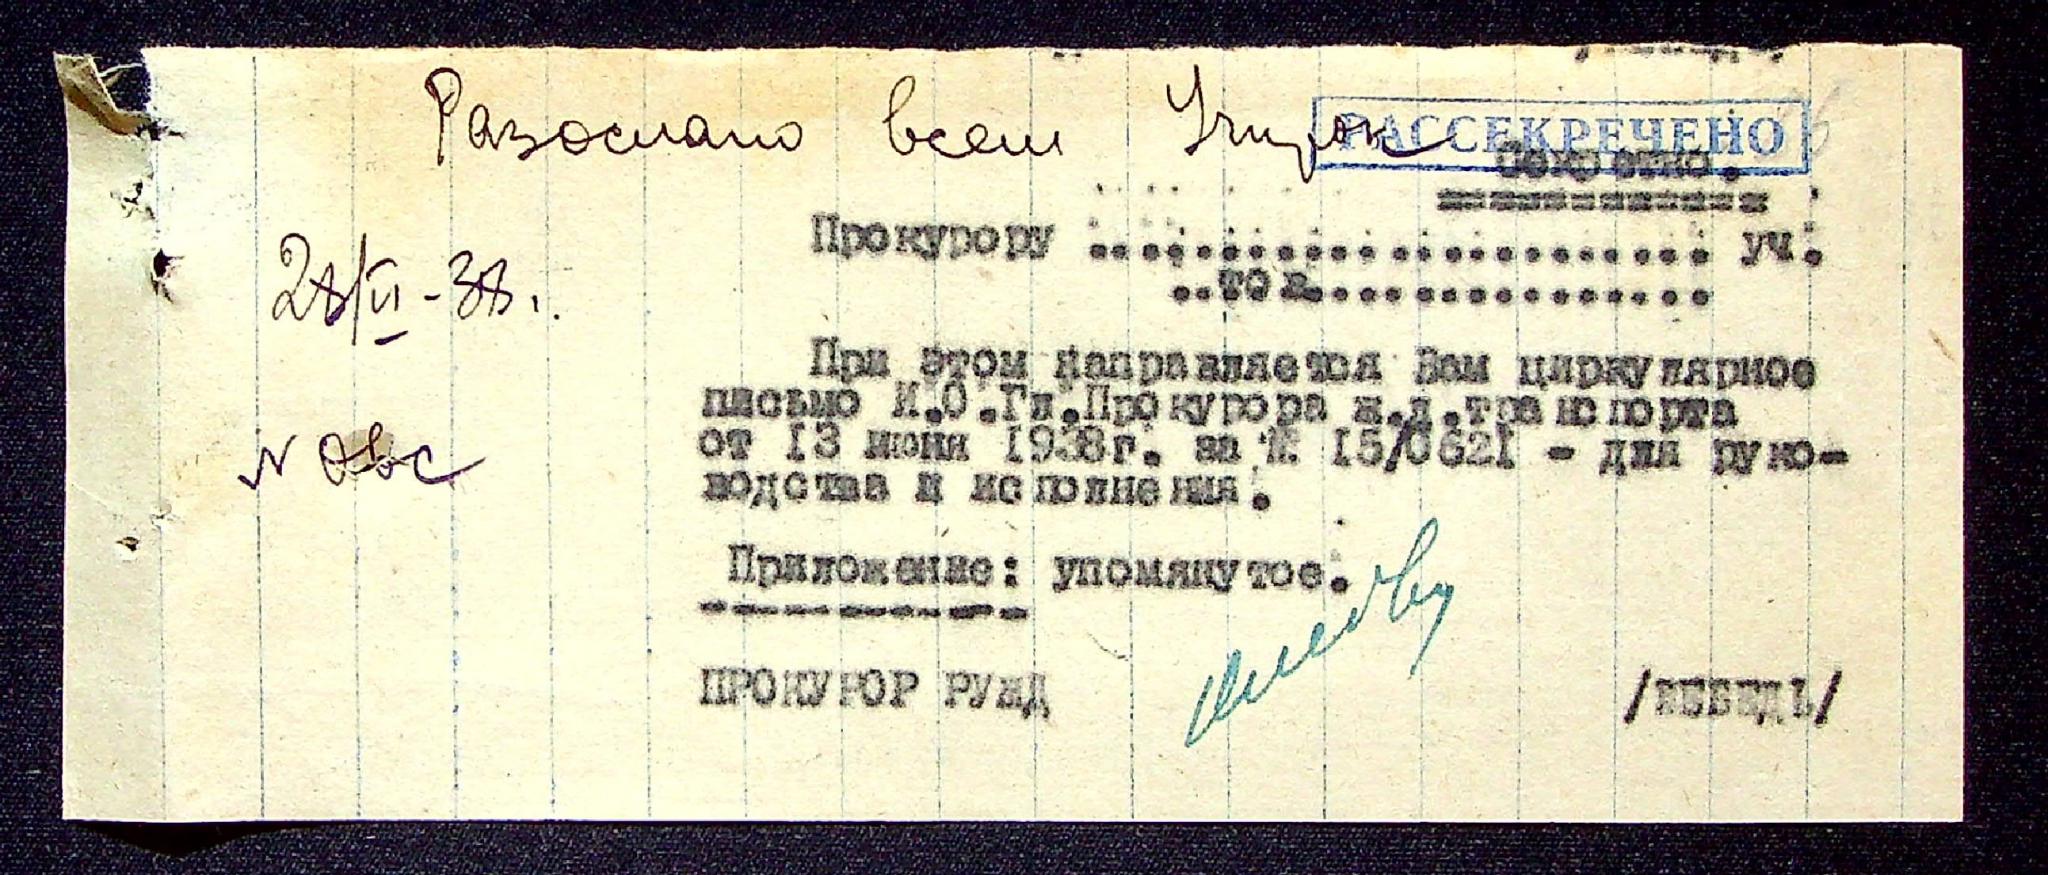 Разослано всем Учпрок
РАССЕКРЕЧЕНО
Секретно.
Прокурору ........................ уч.
..тов................
При этом направляется Вам циркулярное
письмо И.О.Гл.Прокурора ж.д.транспорта
от 13 июня 1938г. за № 15/0621 - для руко-
водства и исполнения.
28/VI-38.
Приложение: упомянутое.
ПРОКУРОР РУЖД
/ЛЕБЕДЬ/